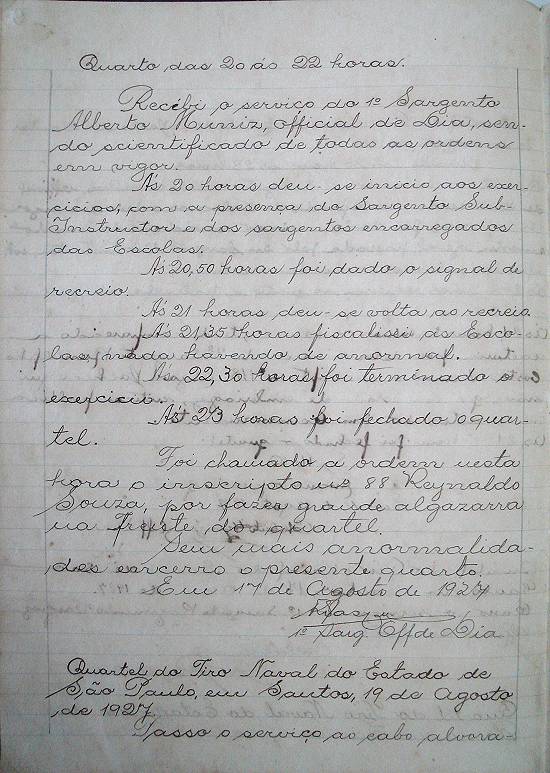 Quarto das 20 ás 22 horas.
Recebi o serviço do 1º Sargento
Alberto Muniz, official de Dia, sen-
do scientificado de todas as ordens
em vigor.
Ás 20 horas deu-se inicio aos exer-
cicios, com a presença do Sargento Sub-
Instructor e dos sargentos encarregados
das Escolas.
Ás 20,50 horas foi dado o signal de
recreio.
Ás 21 horas deu-se volta ao recreio.
Ás 21,35 horas fiscalissei as Esco-
las, nada havendo de anormal.
Ás 22,30 horas foi terminado o
exercicio.
Ás 23 horas foi fechado o quar-
tel.
Foi chamado a ordem nesta
hora o inscripto nº 88 Reynaldo
Souza, por fazer grande algazarra
na frente do quartel.
Sem mais anormalida-
des encerro o presente quarto.
Em 17 de Agosto de 1927
1º Sarg. Off de Dia
Quartel do Tiro Naval do Estado de
São Paulo, em Santos, 19 de Agosto
de 1927
Passo o serviço ao cabo alvora-